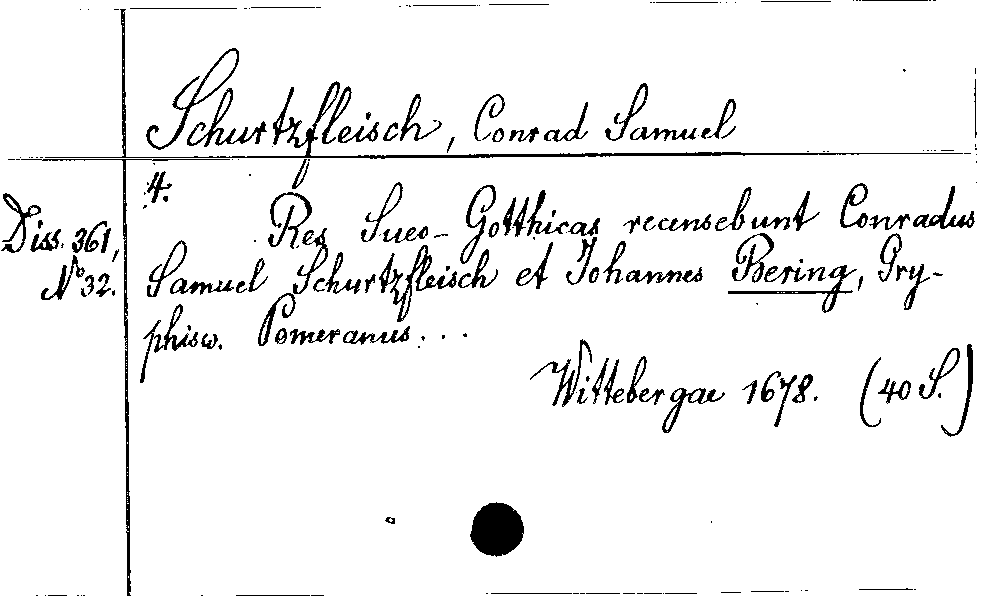 Schurtzfleisch, Conrad Samuel
4.
Diss. 361,
No 32.
Res Sueo-Gotthicas recensebunt Conradus
Samuel Schurtzfleisch et Johannes Bering, Gry-
phisw. Pomeranus...
Wittebergae 1678. (40 S.)